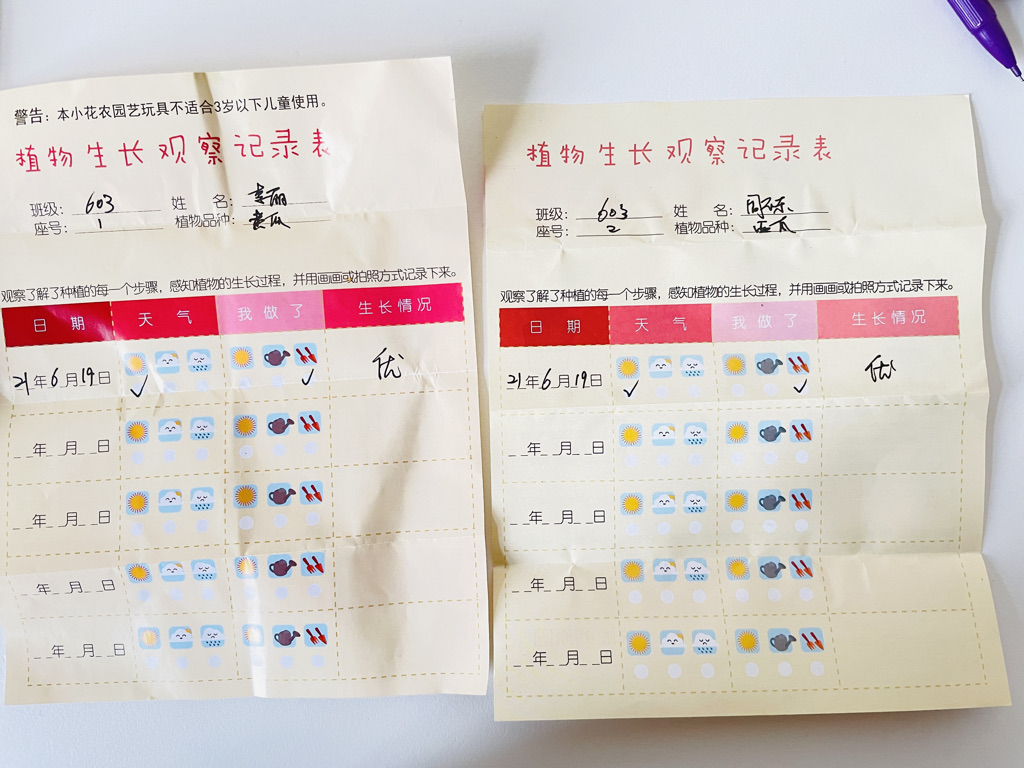 警告：本小花农园艺玩具不适合3岁以下儿童使用。
植物生长观察记录表
班级：603 姓名：李丽
座号：1 植物品种：黄瓜
观察了解了种植的每一个步骤，感知植物的生长过程，并用画画或拍照方式记录下来。
日期 天气 我做了 生长情况
21年6月19日 ✓ ✓ 优
__年__月__日
__年__月__日
__年__月__日
__年__月__日
植物生长观察记录表
班级：603 姓名：
座号：2 植物品种：瓜
观察了解了种植的每一个步骤，感知植物的生长过程，并用画画或拍照方式记录下来。
日期 天气 我做了 生长情况
21年6月19日 ✓ ✓ 优
__年__月__日
__年__月__日
__年__月__日
__年__月__日